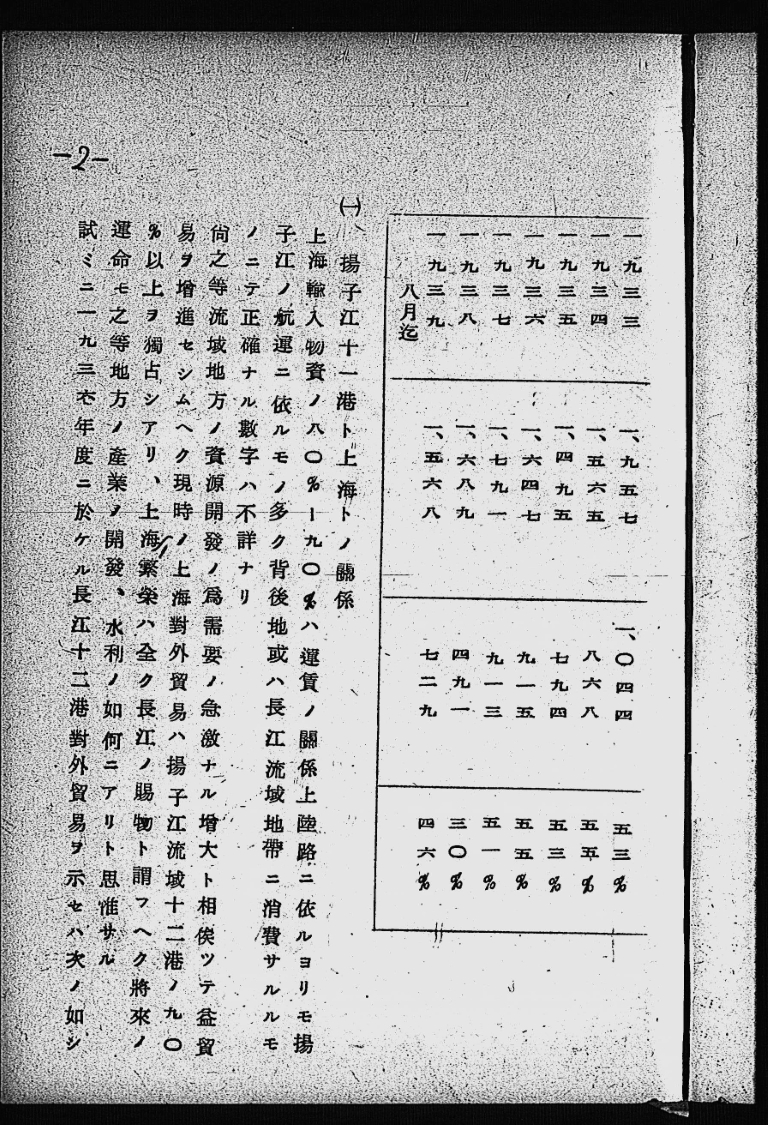 一九三三 一、九五七 一、〇四四 五三%
一九三四 一、五六五 八六八 五五%
一九三五 一、四九五 七九四 五三%
一九三六 一、六四七 九一五 五五%
一九三七 一、七九一 九一三 五一%
一九三八 一、六八九 四九一 三〇%
一九三九 一、五六八 七二九 四六%
八月迄
㈠ 揚子江十一港ト上海トノ關係
上海輸入物資ノ八〇%ー九〇%ハ運賃ノ關係上陸路ニ依ルヨリモ揚
子江ノ航運ニ依ルモノ多ク背後地或ハ長江流域地帶ニ消費サルルモ
ノニテ正確ナル數字ハ不詳ナリ
尙之等流域地方ノ資源開發ノ爲需要ノ急激ナル增大ト相俟ツテ益貿
易ヲ增進セシムヘク現時ノ上海對外貿易ハ揚子江流域十二港ノ九〇
%以上ヲ獨占シアリ、上海繁榮ハ全ク長江ノ賜物ト謂フヘク將來ノ
運命モ之等地方ノ產業ノ開發、水利ノ如何ニアリト思惟サル
試ミニ一九三六年度ニ於ケル長江十二港對外貿易ヲ示セハ次ノ如シ
-2-